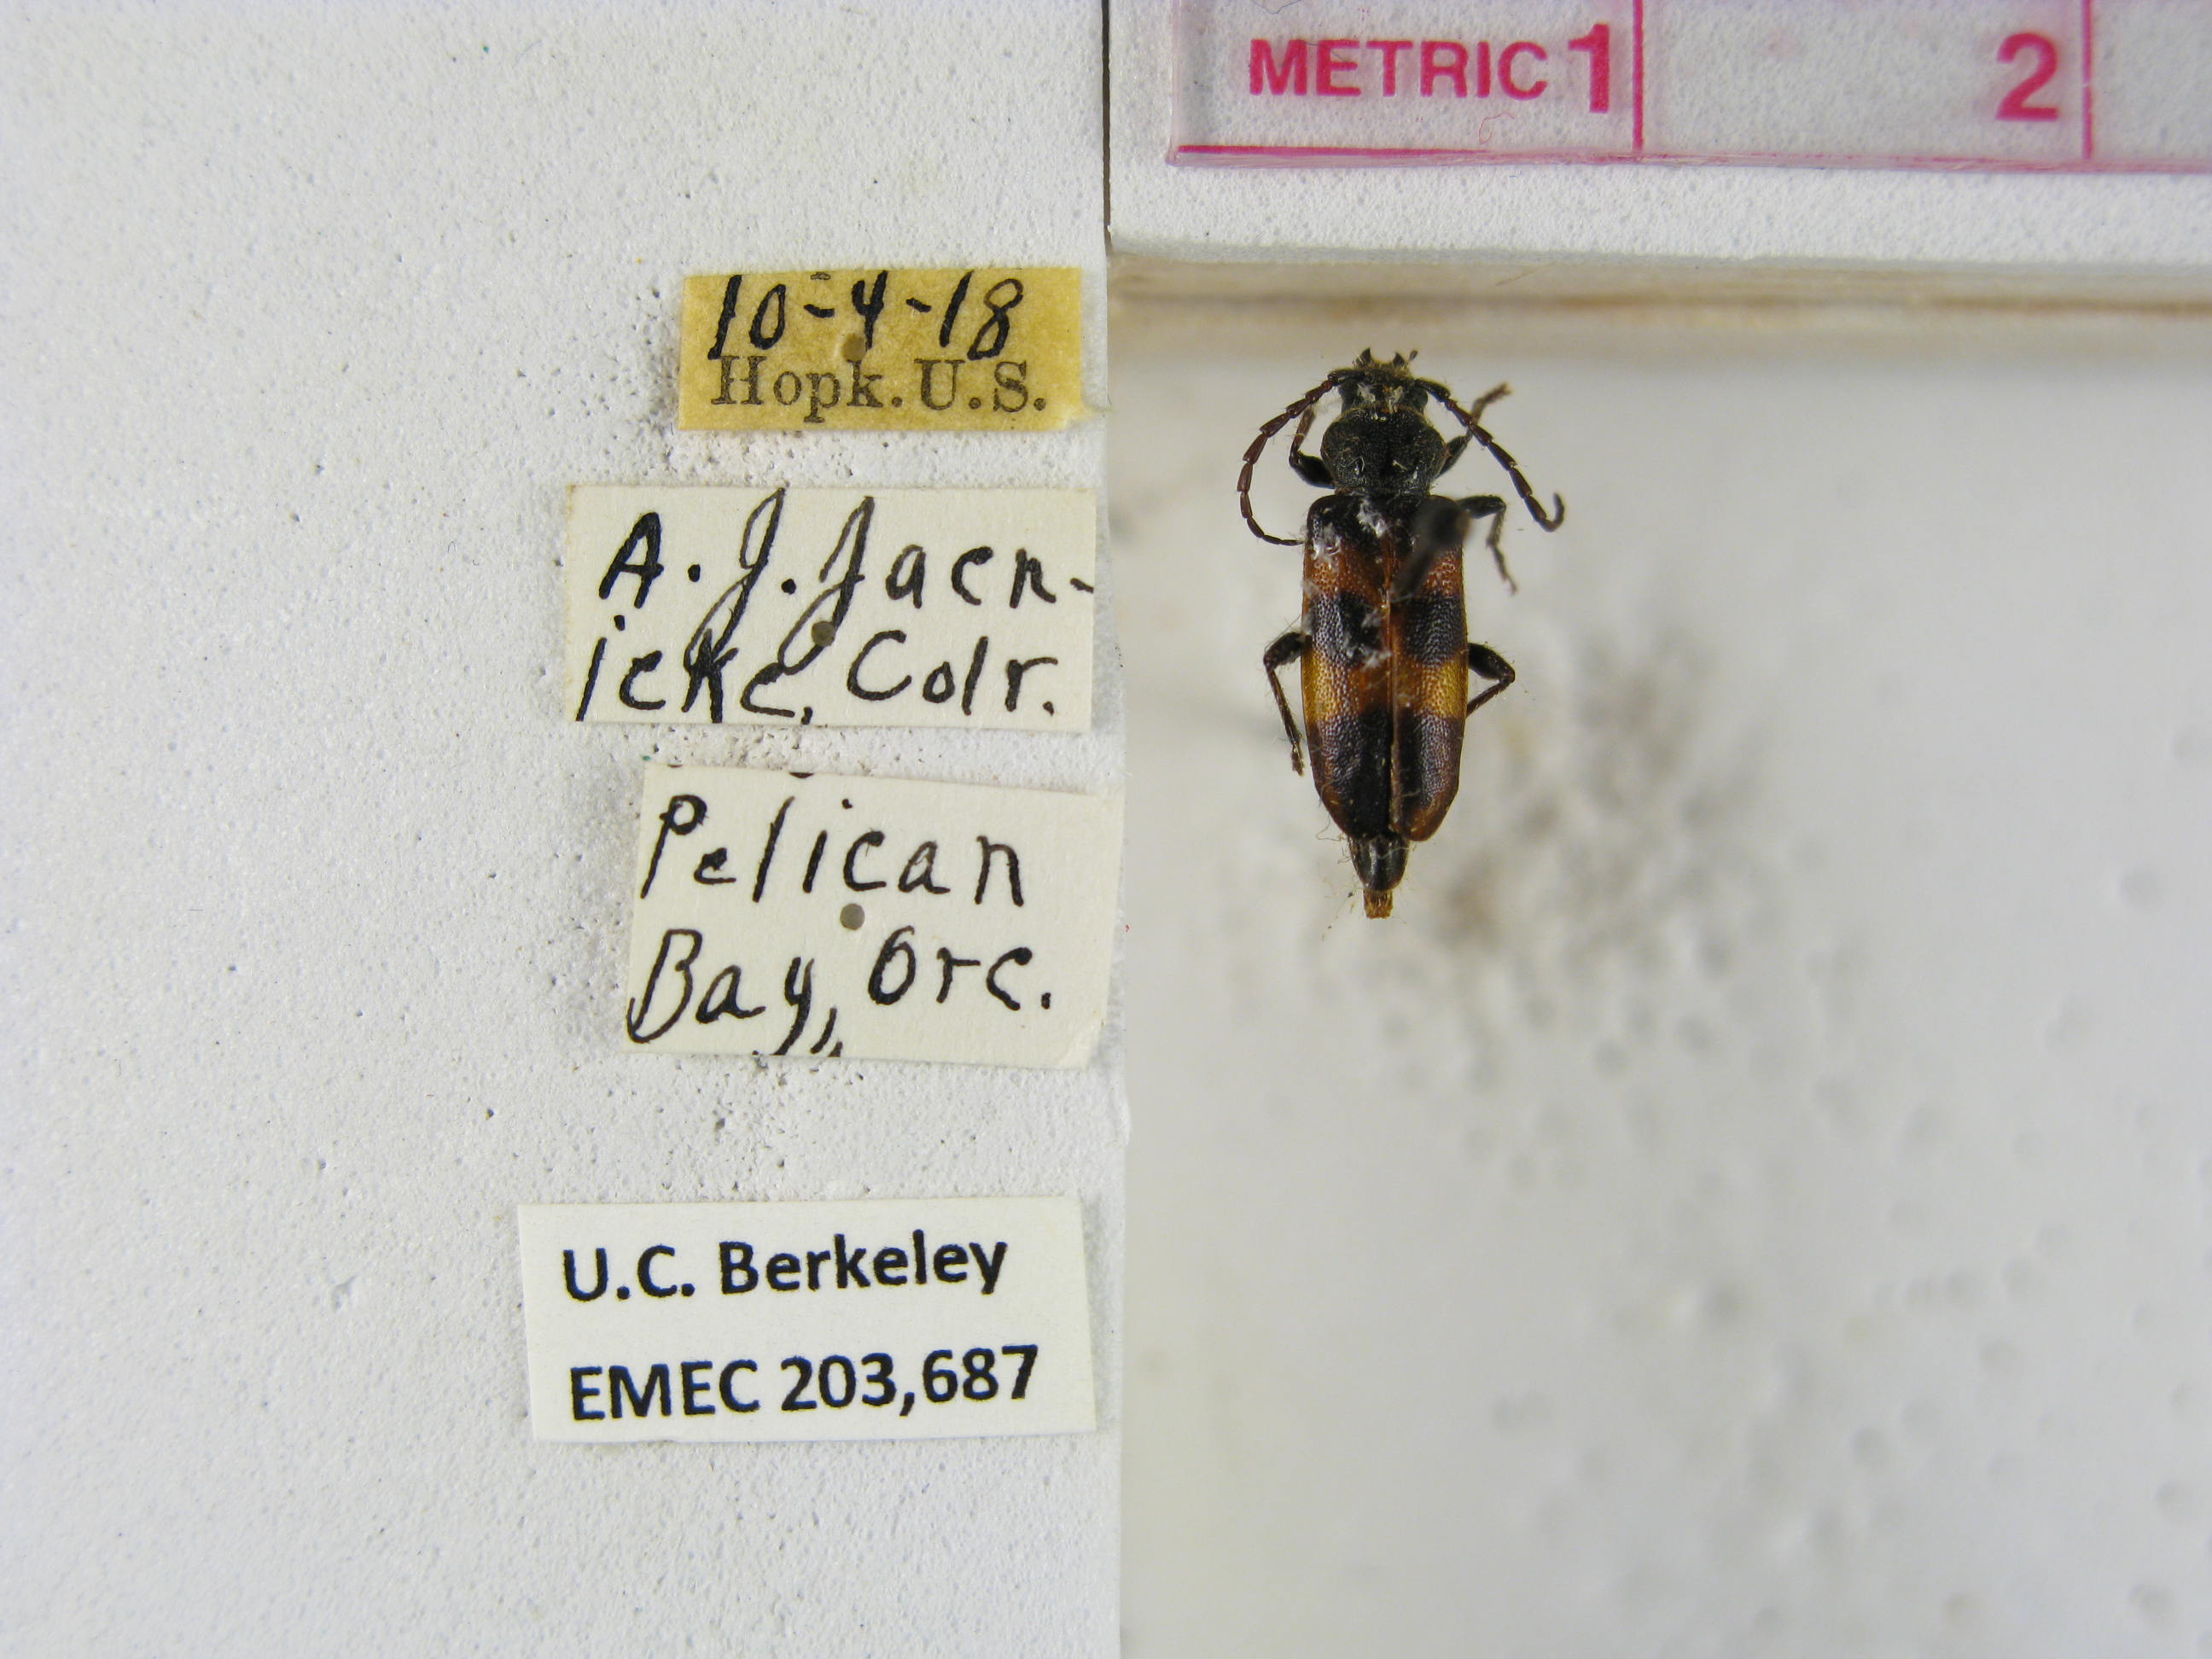 METRIC 1 2
10-4-18
Hopk. U.S.
A. J. Jaen-
icke, Colr.
Pelican
Bay, Ore.
U.C. Berkeley
EMEC 203,687